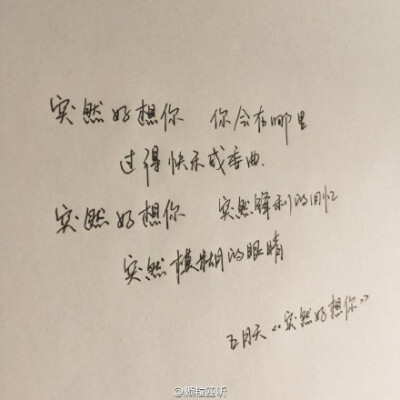 突然好想你 你会在哪里
过得快乐或委曲.
突然好想你 突然锋利的回忆
突然模糊的眼睛
五月天《突然好想你》